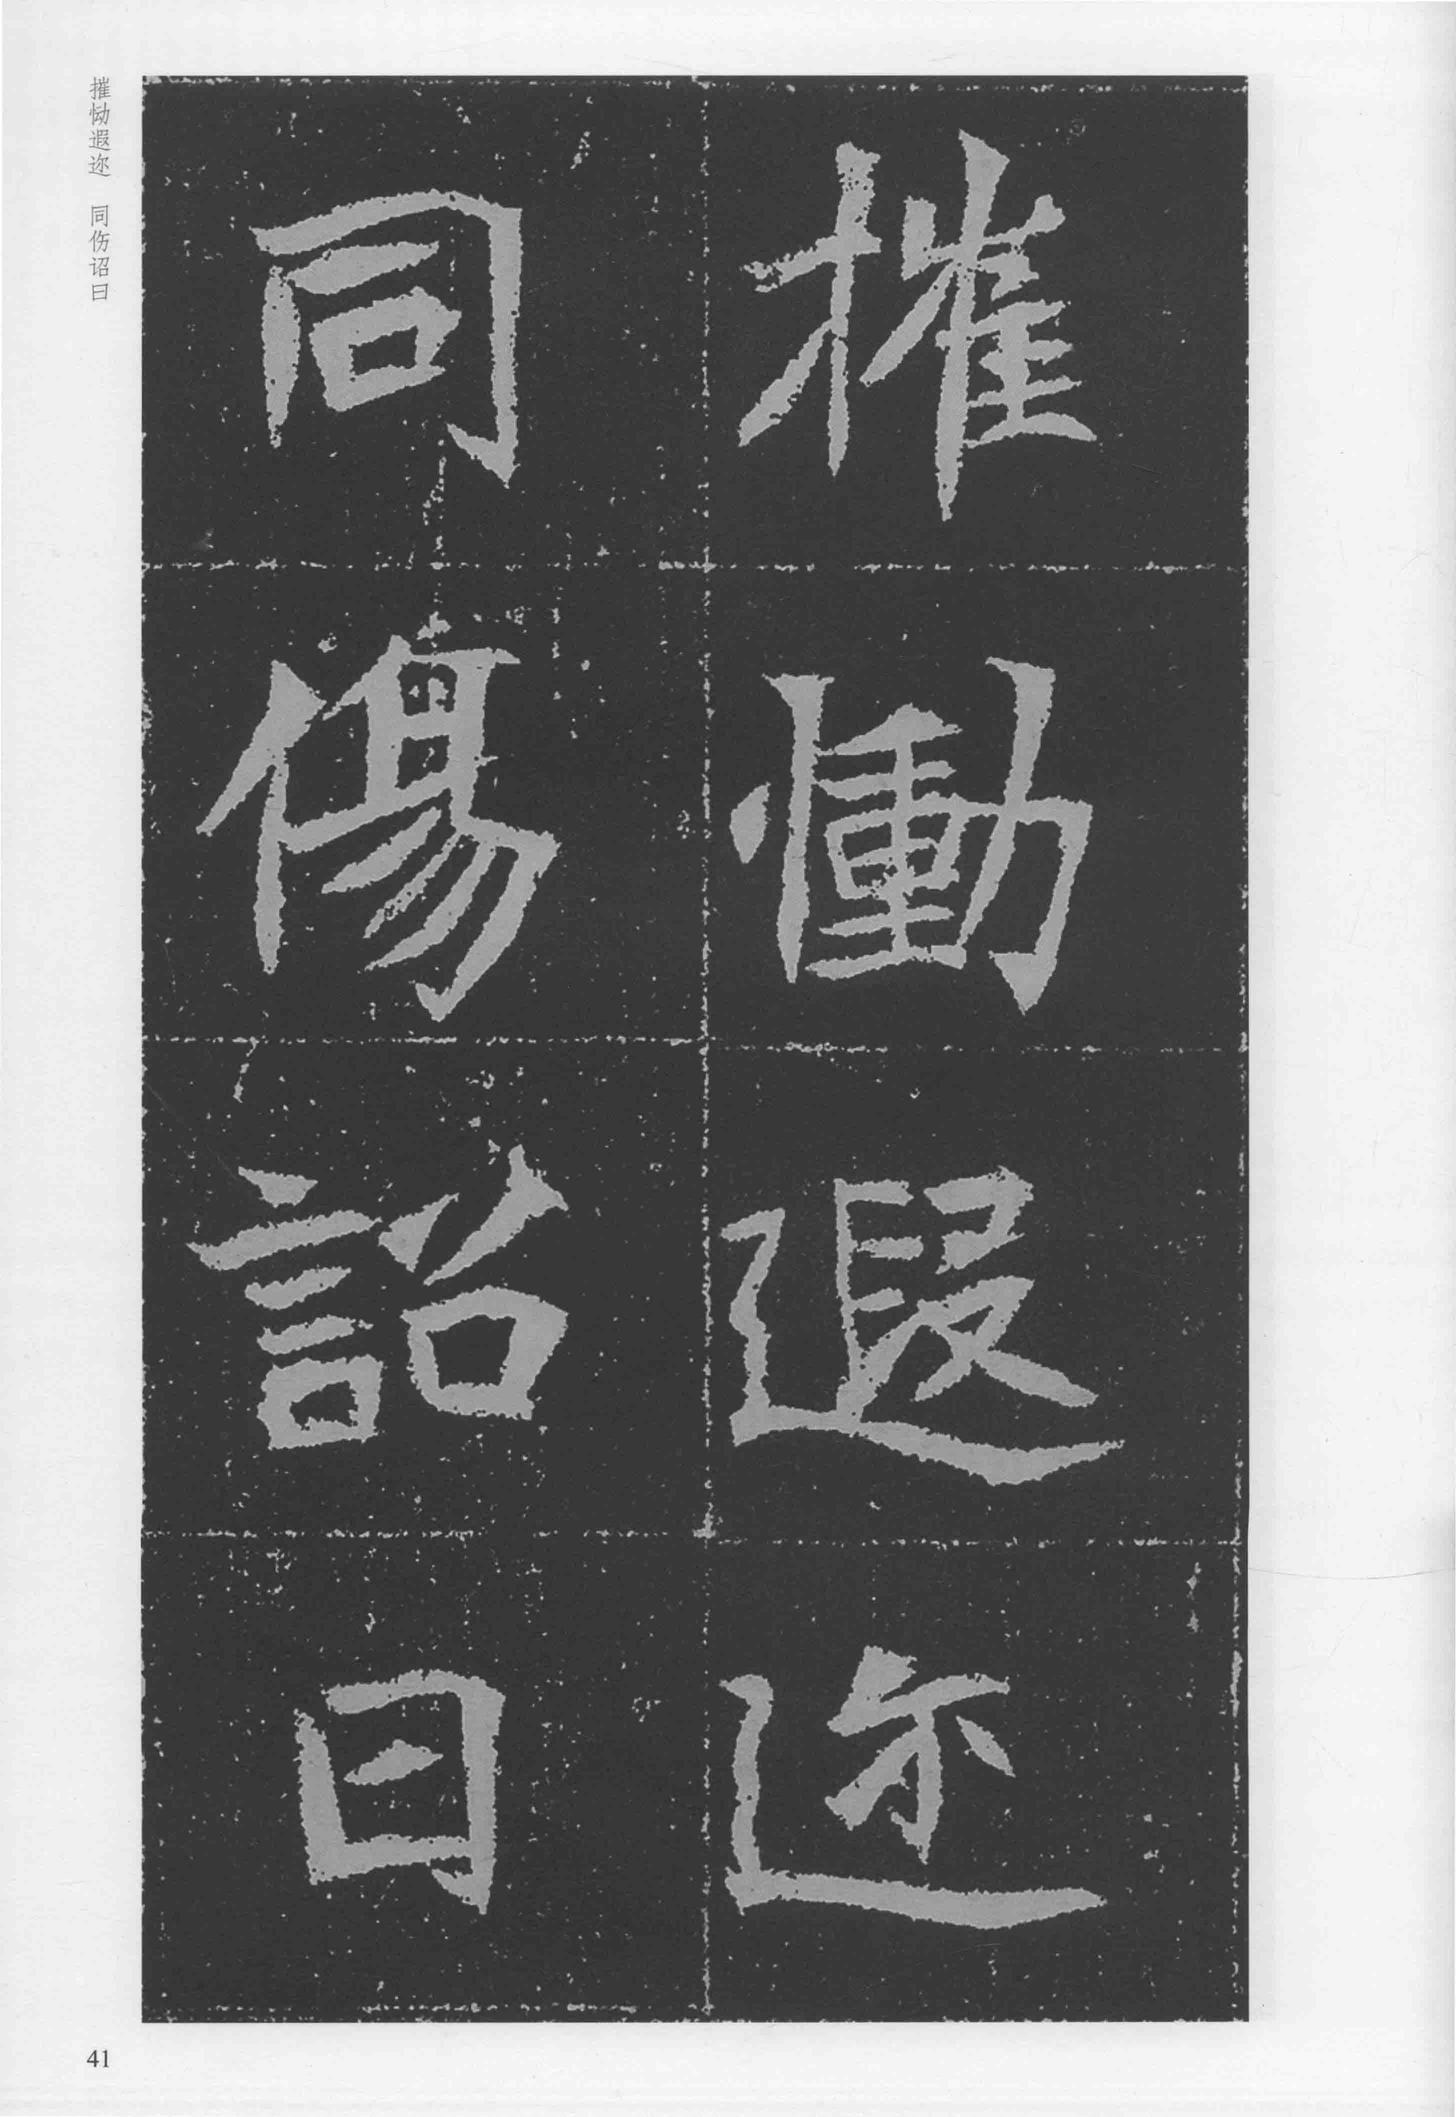 摧慟遐迩
同傷詔曰
摧恸遐迩 同伤诏曰
41